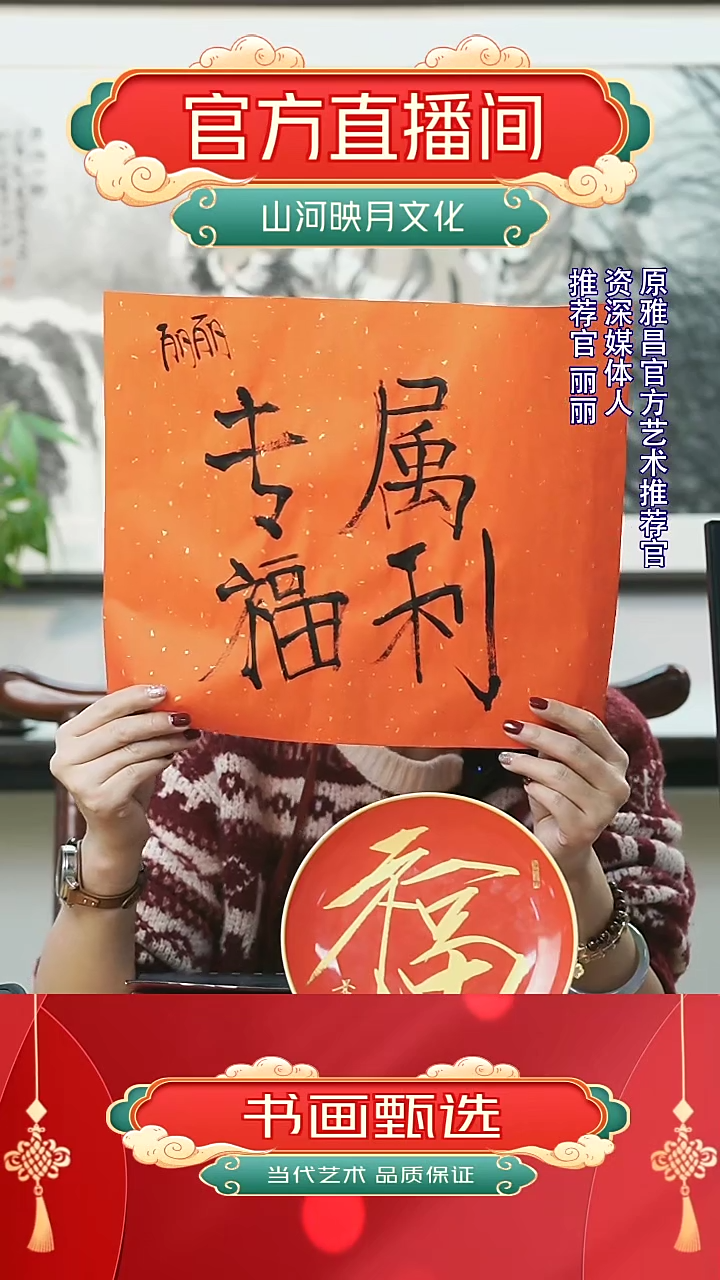 官方直播间
山河映月文化
原雅昌官方艺术推荐官
资深媒体人
推荐官 丽丽
丽丽
专属
福利
福
书画甄选
当代艺术 品质保证